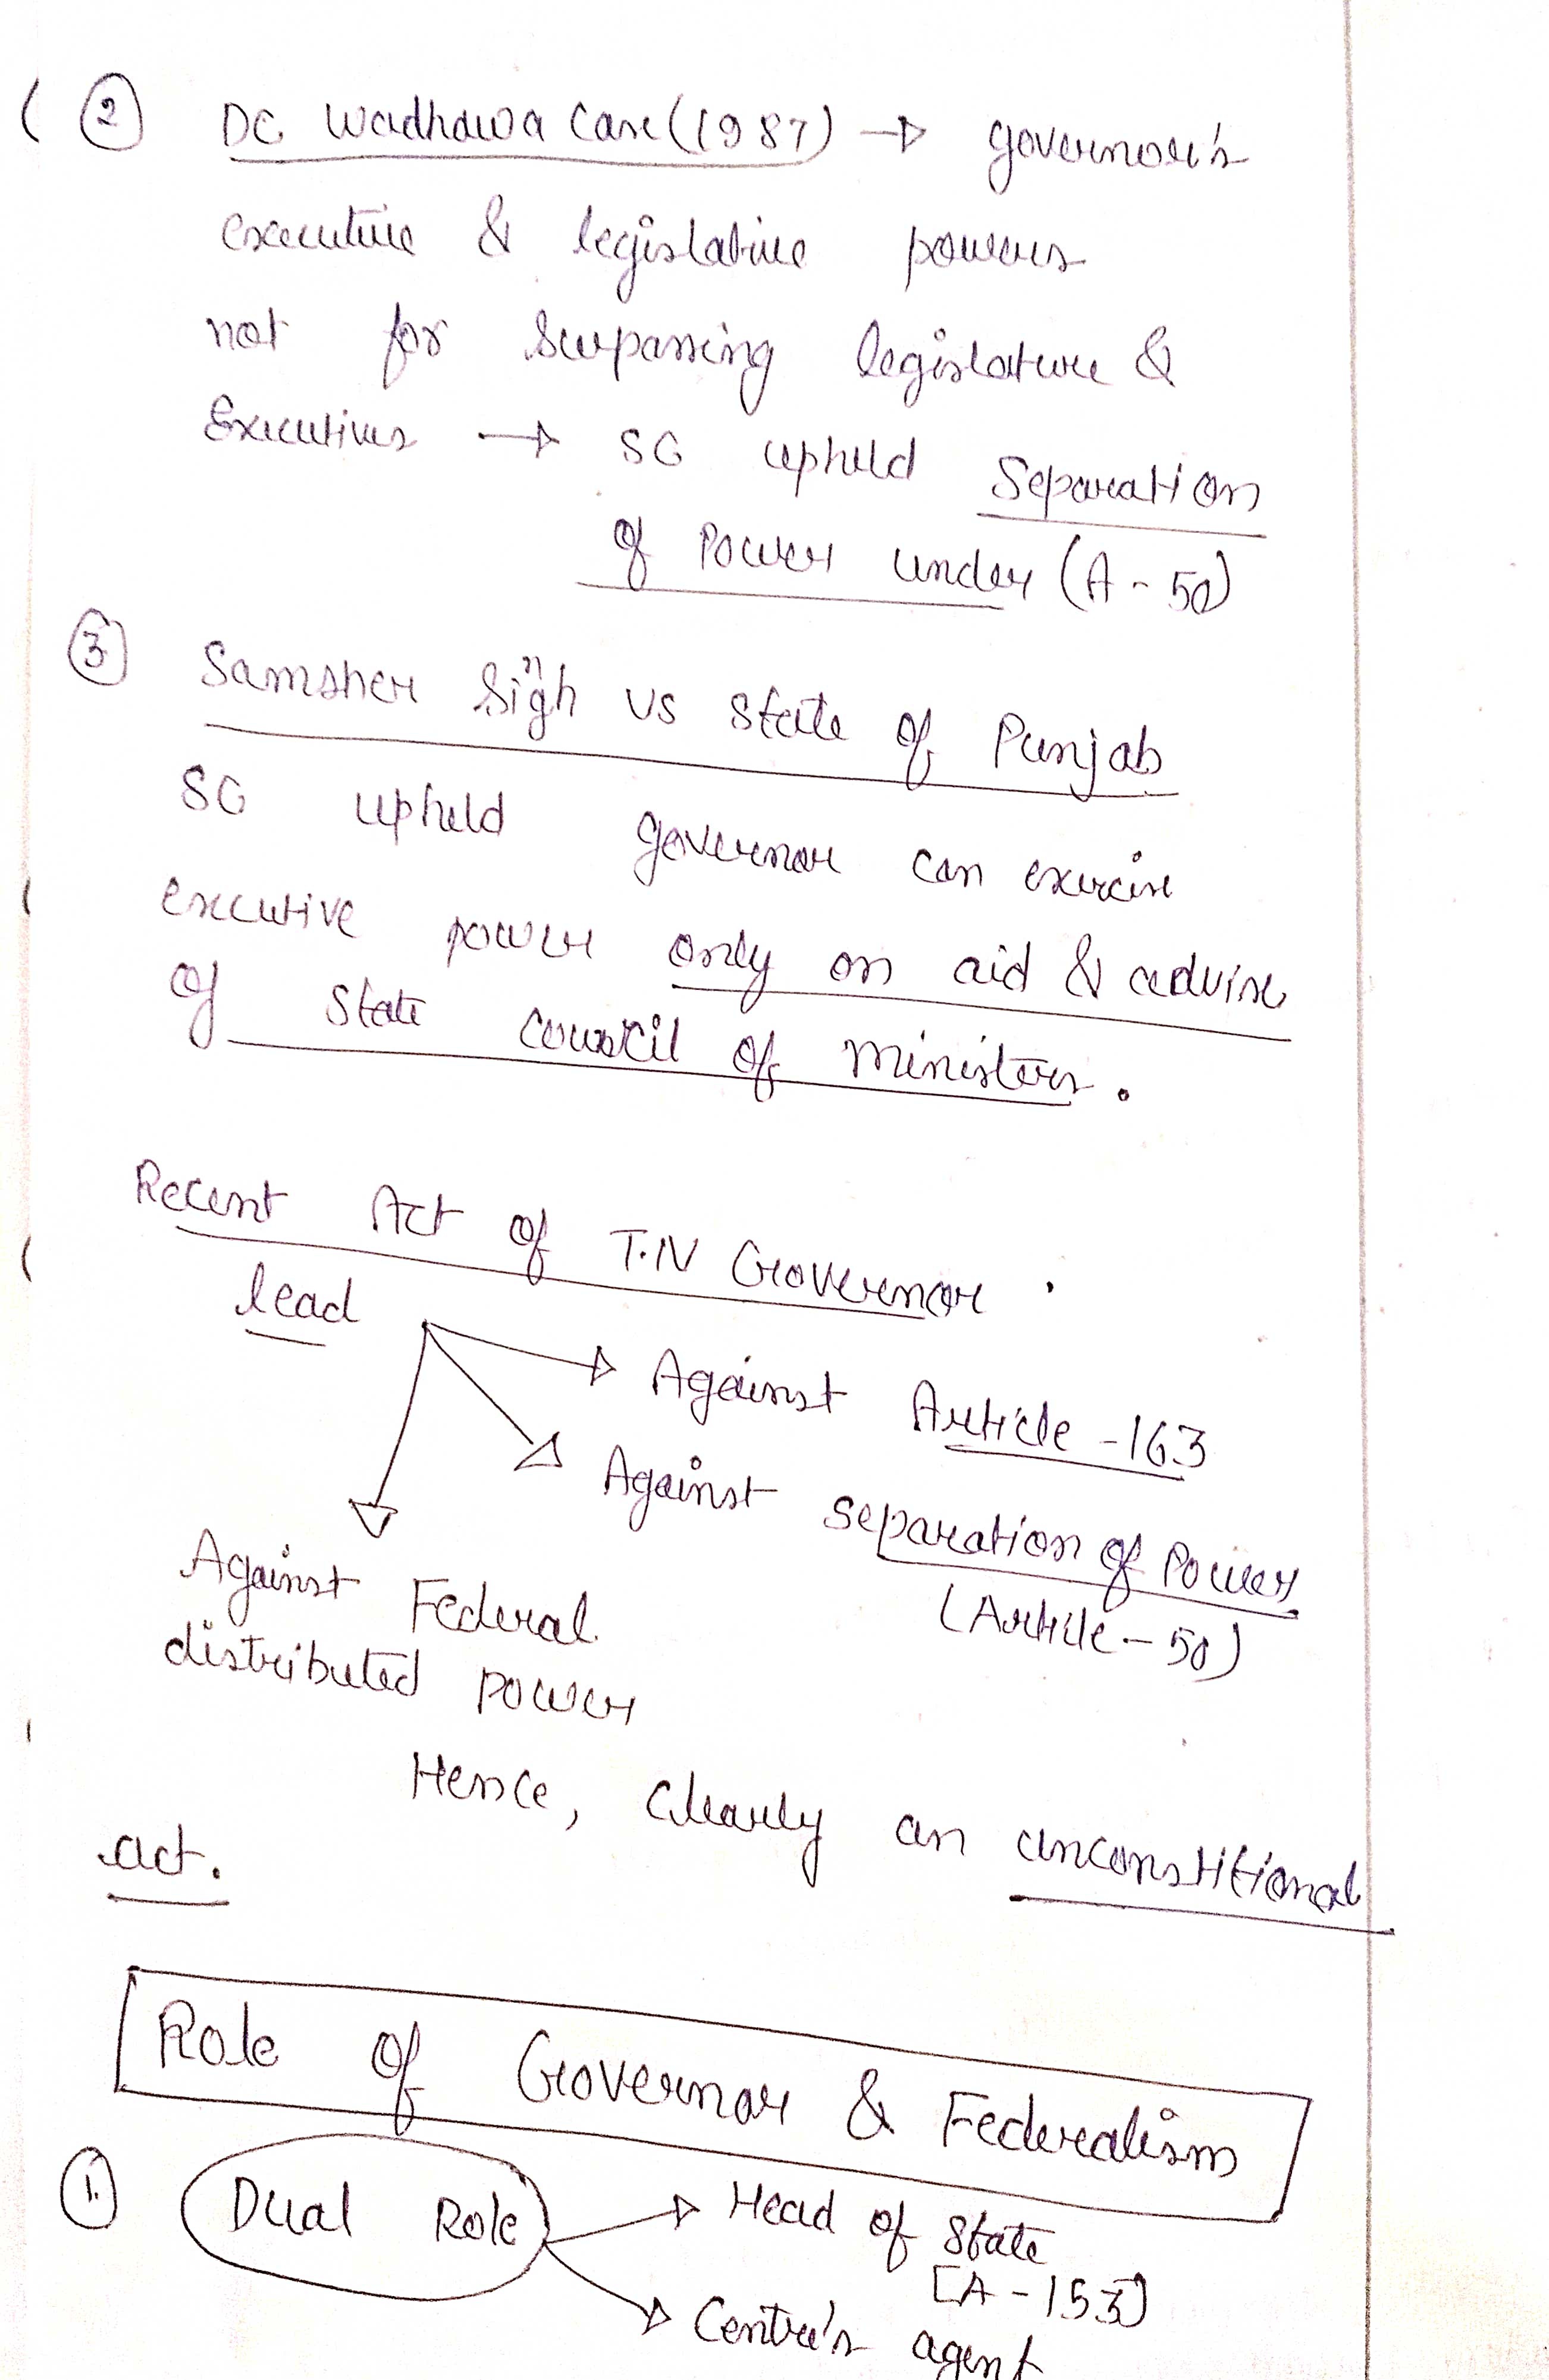 ② DC Wadhawa Case (1987) → governor's
executive & legislative powers
not for surpassing legislature &
Executives → SC upheld Separation
of Power under (A-50)
③ Samsher Singh vs State of Punjab
SC upheld governor can exercise
executive power only on aid & advise
of State Council of Ministers.
Recent Act of T.N Governor.
lead
→ Against Article-163
→ Against separation of Power
(Article-50)
Against Federal
distributed power
Hence, Clearly an unconstitional
act.
Role of Governor & Federealism
①. Dual Role → Head of State
[A-153]
→ Centre's agent